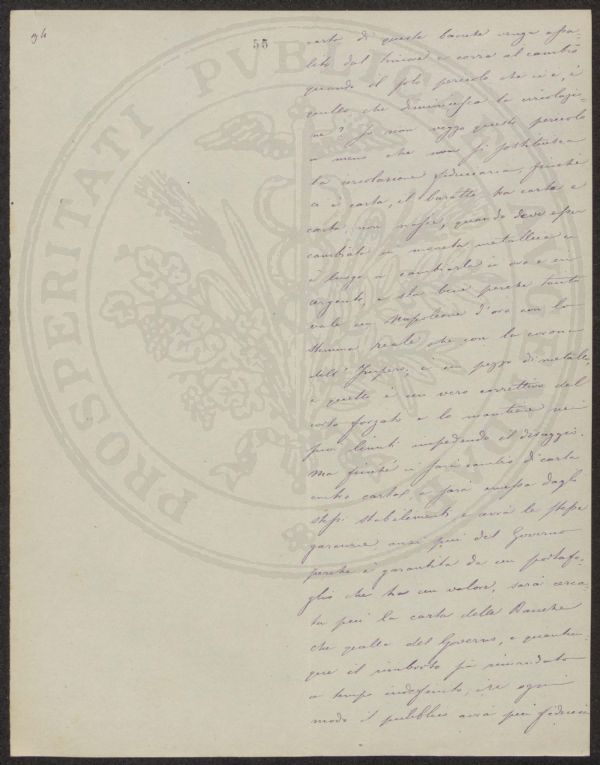 94
55
carta di queste banche venga assa-
lito dal timore e corra al cambio
quando il solo pericolo che vi è, è
quello che diminuisca la circolazio-
ne? Io non veggo questo pericolo
a meno che non si sostituisca
la circolazione fiduciaria finché
vi è carta, il baratto tra carta e
carta non nasce, quando deve esser
cambiata in moneta metallica
è luogo a cambiarla in oro e in
argento, e sta bene perché tanto
vale un Napoleone d'oro con lo
stemma reale che con la corona
dell'Impero, è un pezzo di metallo,
e questo è un vero correttivo del
corso forzato e lo mantiene nei
suoi limiti impedendo il disaggio.
Ma finché vi sarà cambio di carta
contro carta, e sarà emessa dagli
stessi stabilimenti e avrà le stesse
garanzie anzi più del Governo
perché è garantita da un portafo-
glio che ha un valore, sarà cerca-
ta più la carta delle Banche
che quella del Governo, e quantun-
que il rimborso sia rimandato
a tempo indefinito, in ogni
modo il pubblico avrà più fiducia
PROSPERITATI PVBLICAE